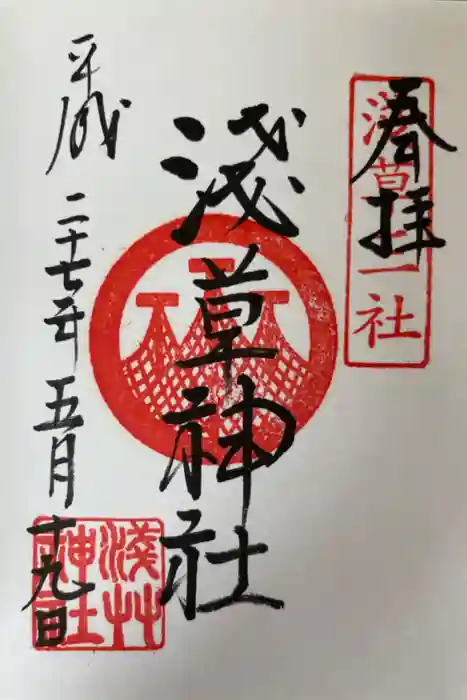 奉拝
浅草三社
淺草神社
平成二十七年五月十九日
淺草神社